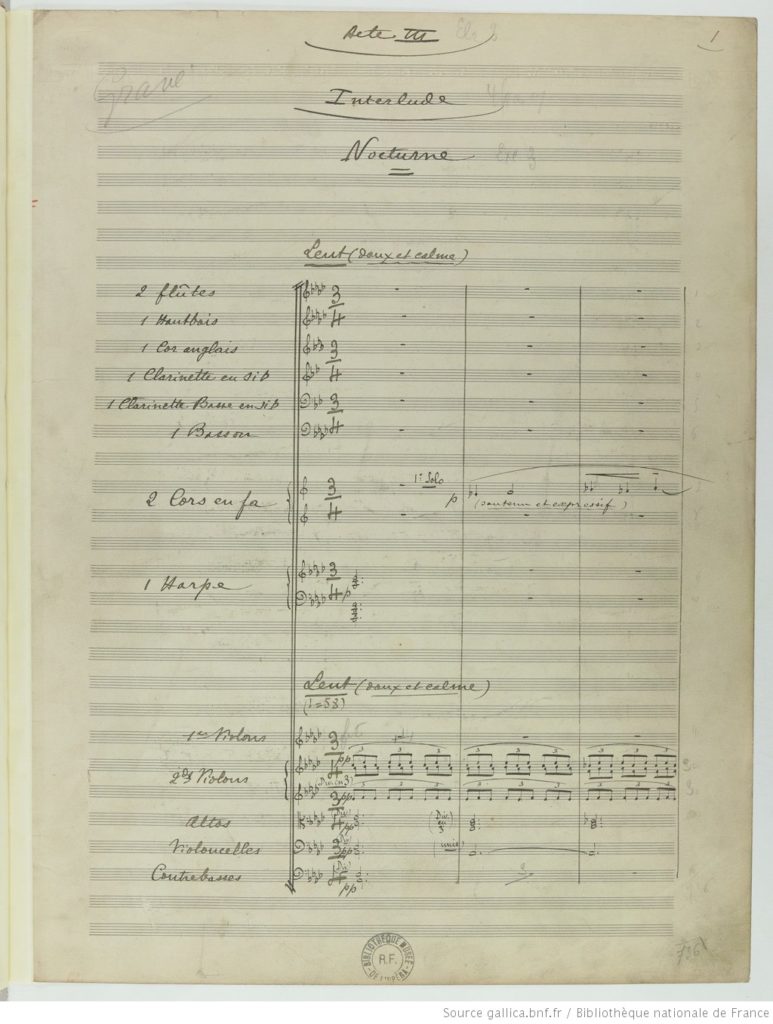 Acte III
1
Grave
Interlude
Nocturne
Lent (doux et calme)
2 flûtes
1 Hautbois
1 Cor anglais
1 Clarinette en si♭
1 Clarinette Basse en si♭
1 Basson
1º Solo
2 Cors en fa
p
(soutenu et expressif)
1 Harpe
p
Lent (doux et calme)
(♩=58)
1ers Violons
pp
3 3 3 3 3 3 3 3
2ds Violons
(Div. en 3)
pp
Altos
pp
(Div.)
Violoncelles
pp
(unis)
Contrebasses
pp
BIBLIOTHÈQUE MUSÉE
R.F.
DE L'OPÉRA
Source gallica.bnf.fr / Bibliothèque nationale de France